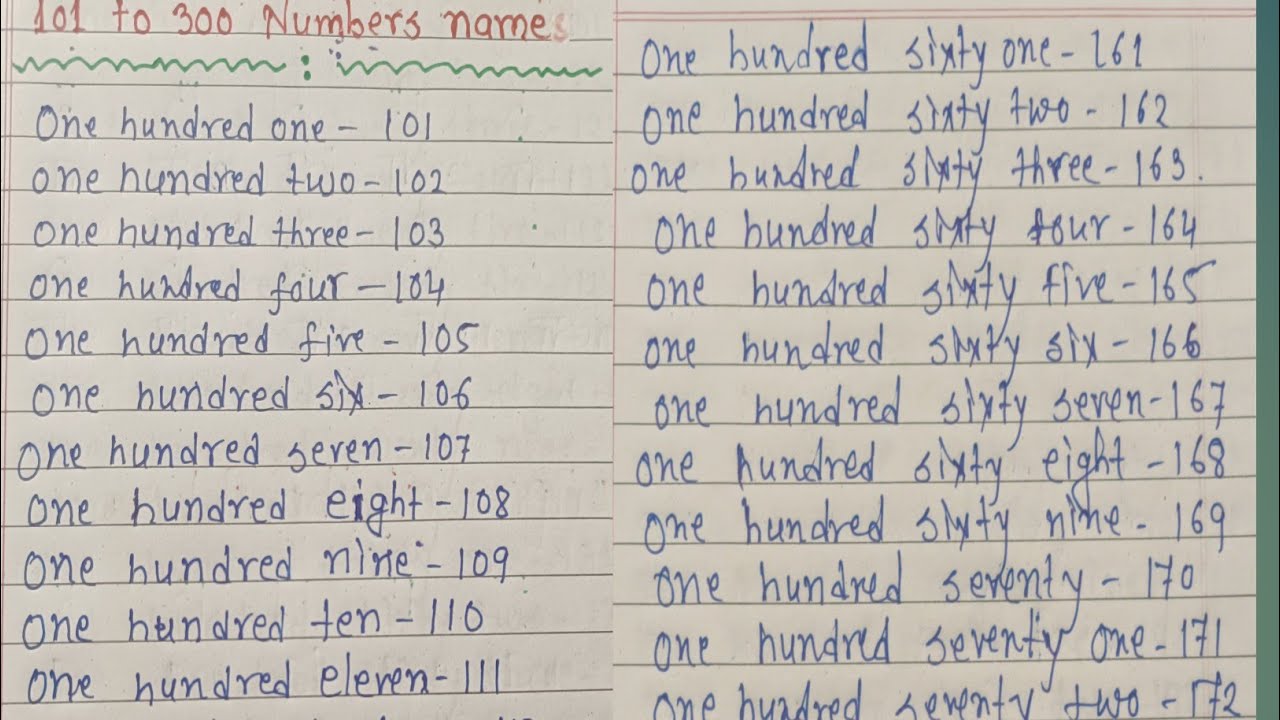 101 to 300 Numbers names
One hundred one - 101
One hundred two - 102
One hundred three - 103
One hundred four - 104
One hundred five - 105
One hundred six - 106
One hundred seven - 107
One hundred eight - 108
One hundred nine - 109
One hundred ten - 110
One hundred eleven - 111
One hundred sixty one - 161
One hundred sixty two - 162
One hundred sixty three - 163.
One hundred sixty four - 164
One hundred sixty five - 165
One hundred sixty six - 166
One hundred sixty seven - 167
One hundred sixty eight - 168
One hundred sixty nine - 169
One hundred seventy - 170
One hundred seventy one - 171
One hundred seventy two - 172